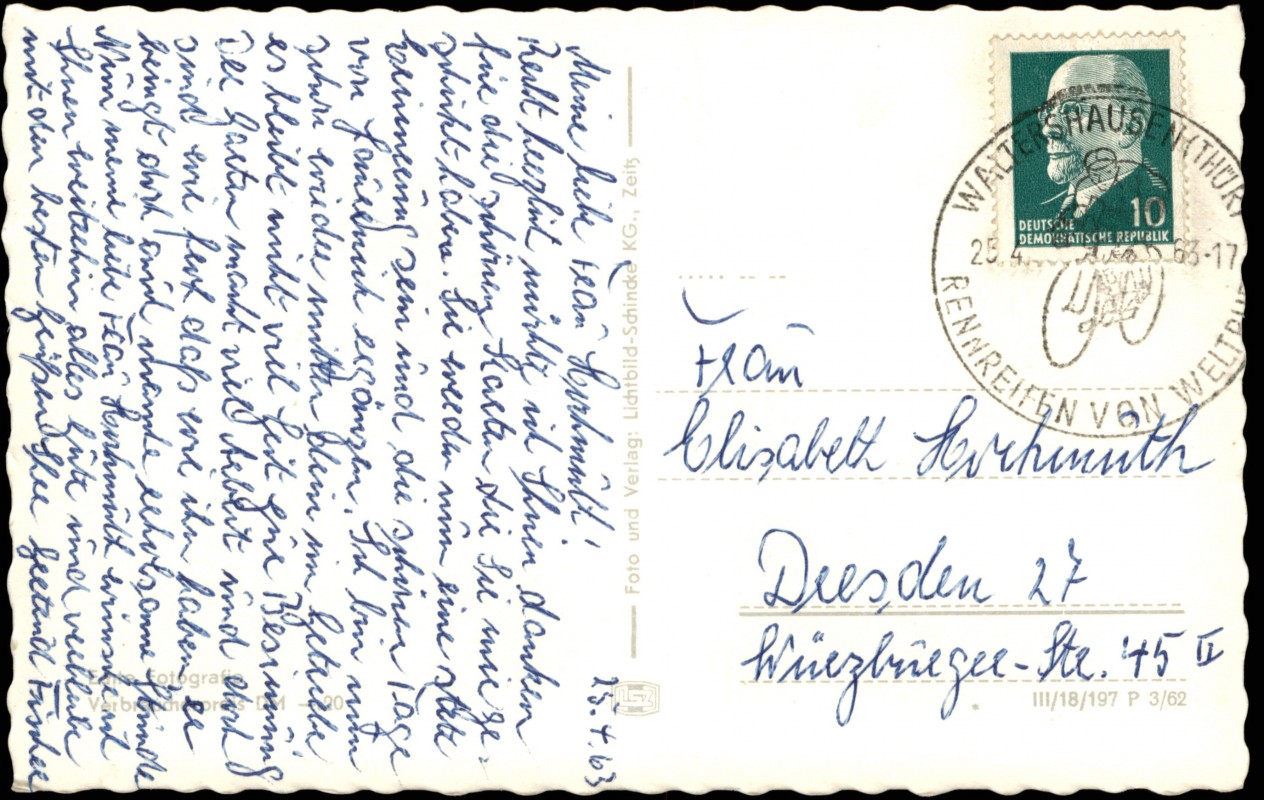 15.4.63
Meine liebe Frau Hochmuth!
Recht herzlich möchte ich Ihnen danken
für die schönen Karten die Sie mir ge-
schickt haben. Sie werden nun eine stete
Erinnerung sein und die schönen Tage
von Gründonnerst ergänzen. Ich bin nun
schon wieder mitten drin im Getriebe
es bleibt nicht viel Zeit zur Besinnung
Der Garten macht viel Arbeit und doch
sind wir froh daß wir ihn haben, er
bringt doch auch manche erholsame Stunde
Nun meine liebe Frau Hochmuth wünsche ich
Ihnen weiterhin alles Gute und verbleibe
mit den besten Grüßen Ihre Gertrud Fischer
Echte Fotografie
Verbraucherpreis DM -.20
Foto und Verlag: Lichtbild-Schincke KG., Zeitz
DEUTSCHE
DEMOKRATISCHE REPUBLIK
10
WALTERSHAUSEN (THÜR)
25.4.63-17
RENNREIFEN VON WELTRUF
Frau
Elisabeth Hochmuth
Dresden 27
Würzburger-Str. 45 II
III/18/197 P 3/62